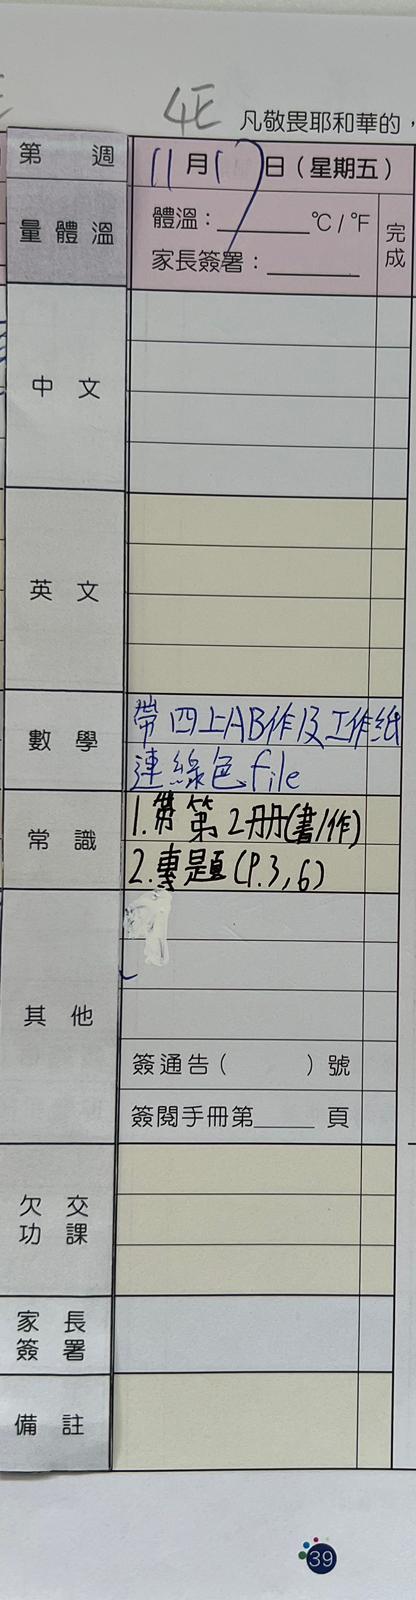 4E
凡敬畏耶和華的，
第 週
11月17日（星期五）
量體溫
體溫：______°C / °F
家長簽署：______
完成
中文
英文
數學
帶四上AB作及工作紙
連綠色file
常識
1.帶第2冊(書/作)
2.專題(P.3,6)
其他
簽通告（ ）號
簽閱手冊第____ 頁
欠交功課
家長簽署
備註
39